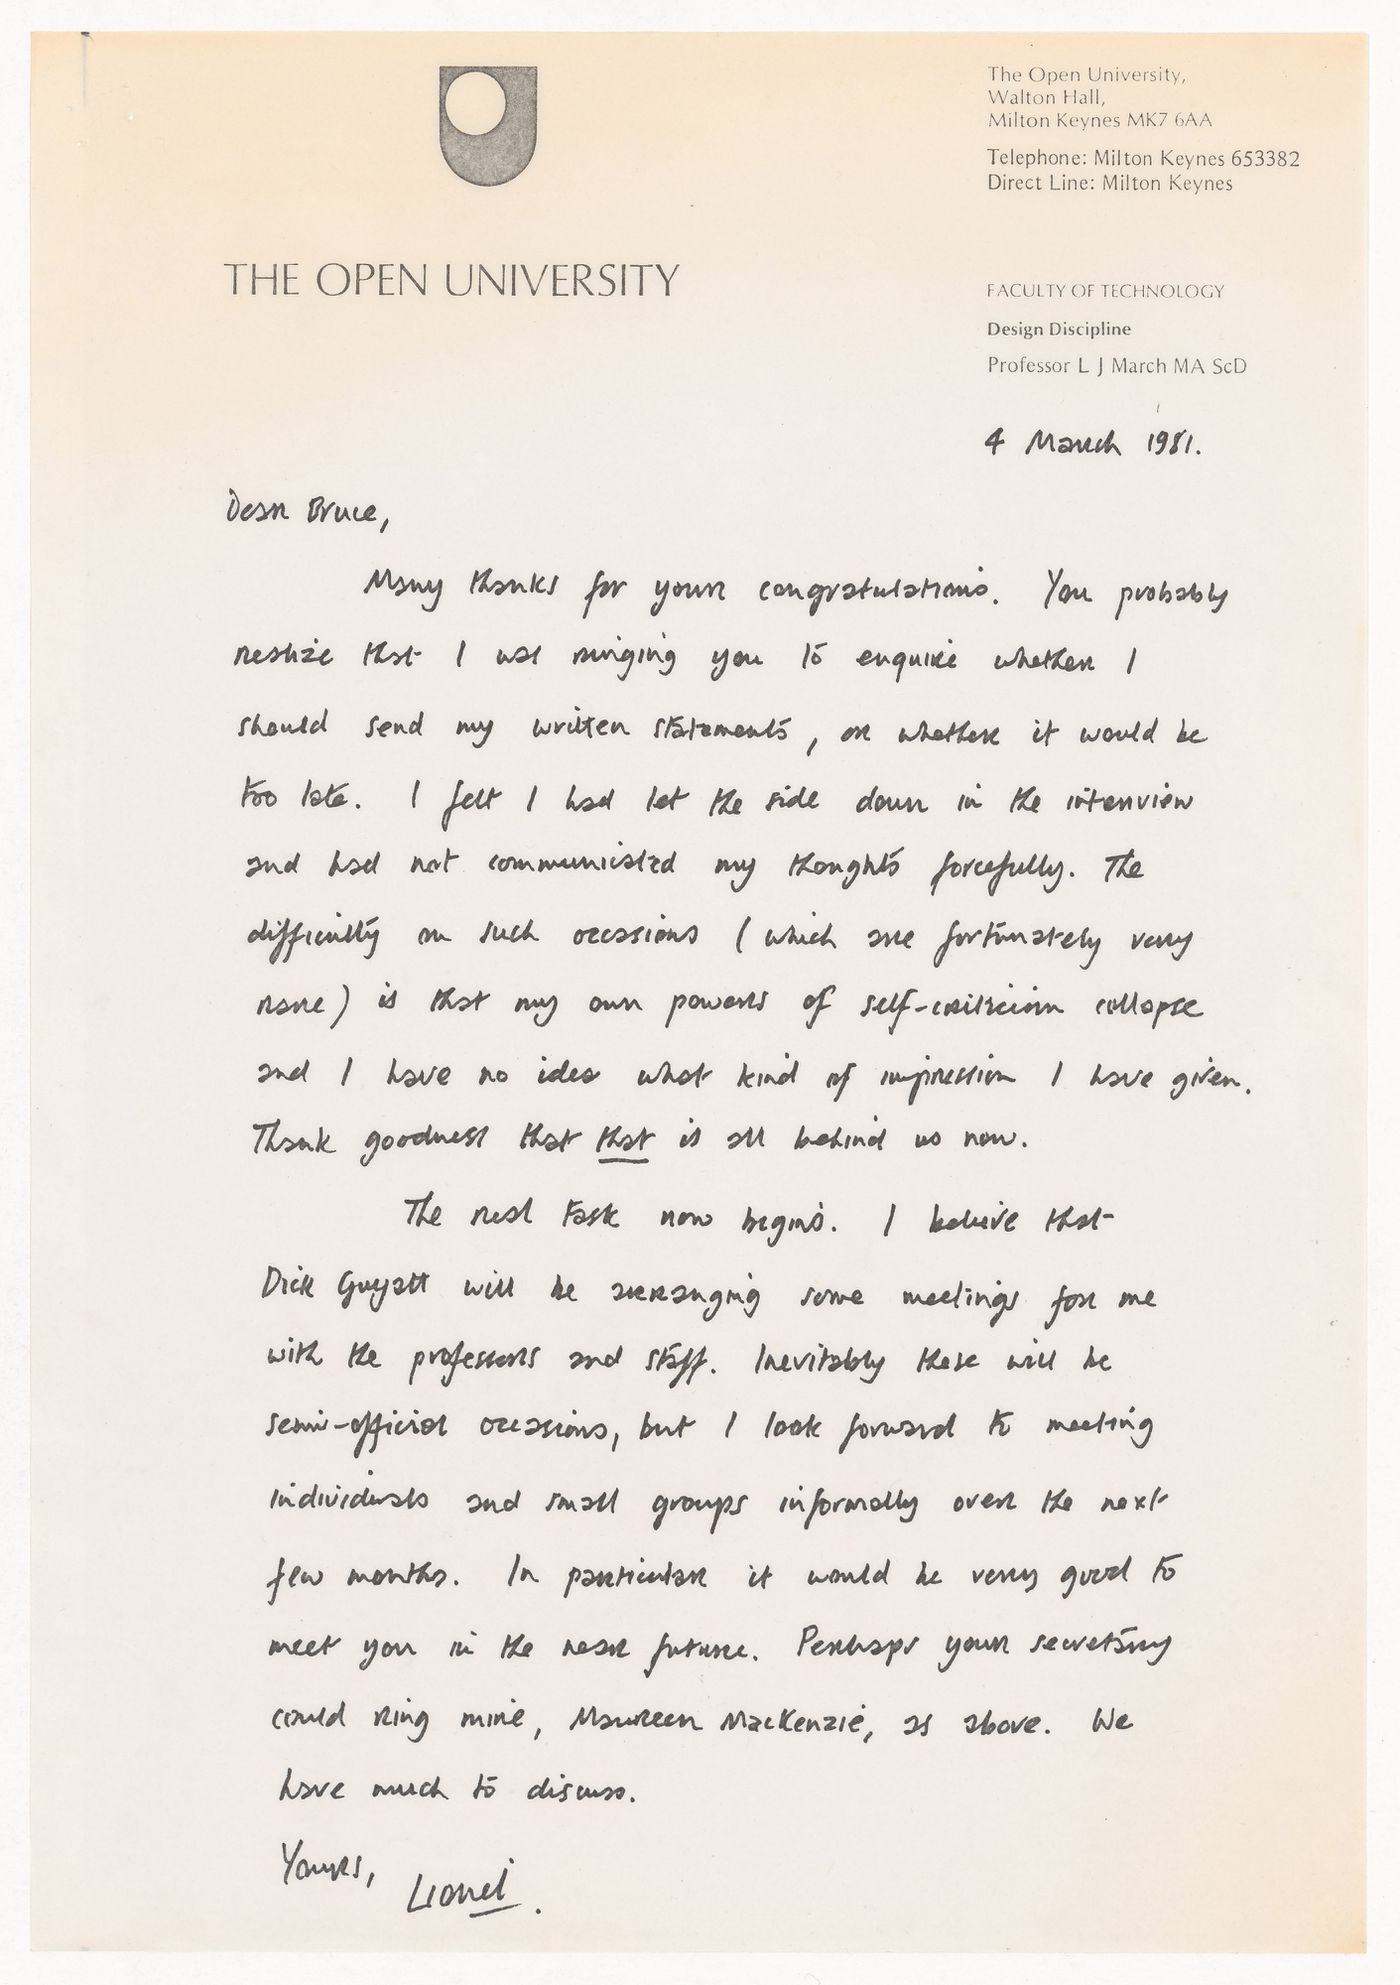 The Open University,
Walton Hall,
Milton Keynes MK7 6AA
Telephone: Milton Keynes 653382
Direct Line: Milton Keynes
THE OPEN UNIVERSITY
FACULTY OF TECHNOLOGY
Design Discipline
Professor L J March MA ScD
4 March 1981.
Dear Bruce,
Many thanks for your congratulations. You probably
realize that I was ringing you to enquire whether I
should send my written statements, or whether it would be
too late. I felt I had let the side down in the interview
and had not communicated my thoughts forcefully. The
difficulty on such occasions (which are fortunately very
rare) is that my own powers of self-criticism collapse
and I have no idea what kind of impression I have given.
Thank goodness that that is all behind us now.
The real task now begins. I believe that
Dick Guyatt will be arranging some meetings for me
with the professors and staff. Inevitably these will be
semi-official occasions, but I look forward to meeting
individuals and small groups informally over the next
few months. In particular it would be very good to
meet you in the near future. Perhaps your secretary
could ring mine, Maureen MacKenzie, as above. We
have much to discuss.
Yours,
Lionel.